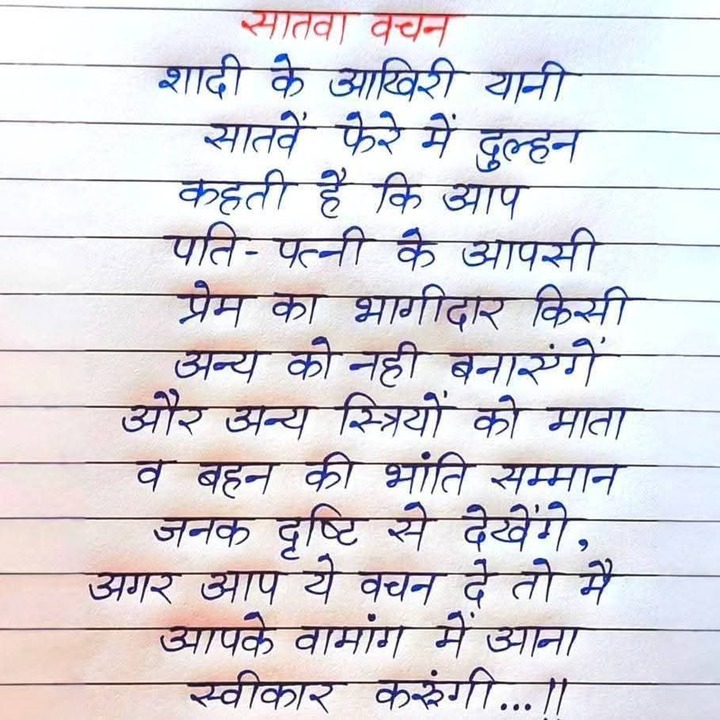 सातवा वचन
शादी के आखिरी यानी
सातवें फेरे में दुल्हन
कहती है कि आप
पति-पत्नी के आपसी
प्रेम का भागीदार किसी
अन्य को नही बनाएंगें
और अन्य स्त्रियों को माता
व बहन की भांति सम्मान
जनक दृष्टि से देखेंगे,
अगर आप ये वचन दे तो मै
आपके वामांग में आना
स्वीकार करुंगी...!!